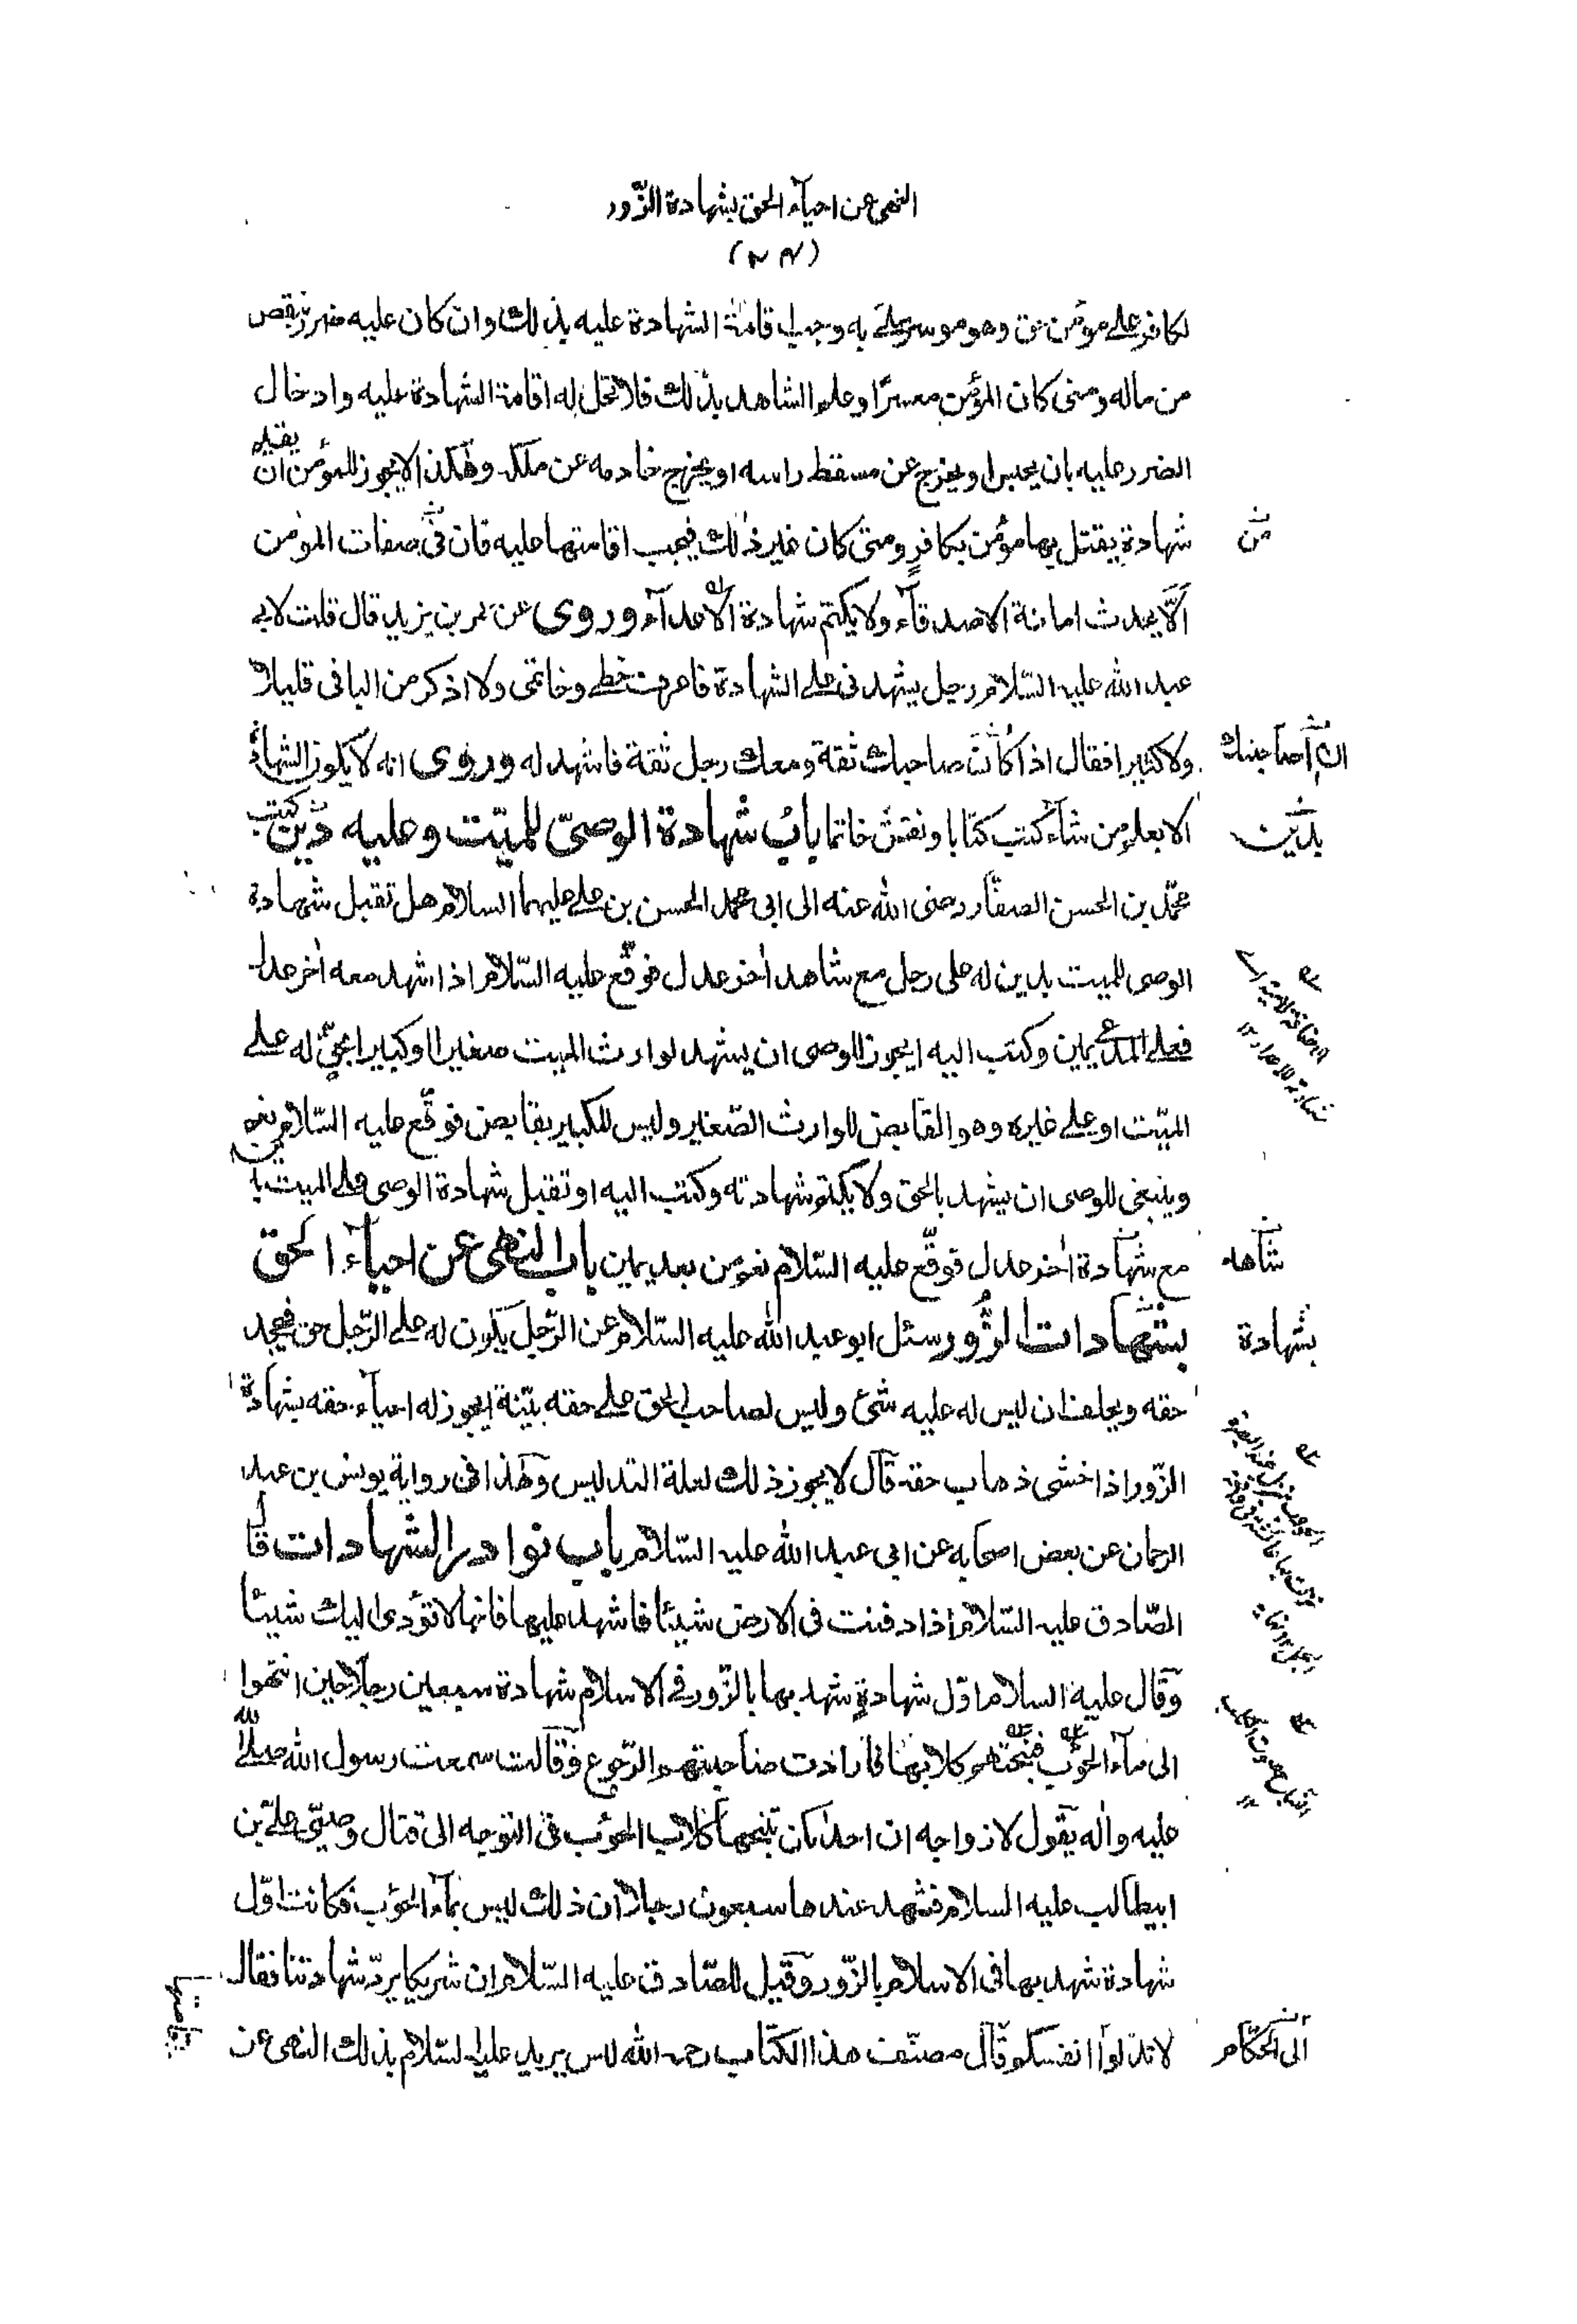 النهي عن احيآء الحق بشهادة الزّور
(٢٤)
لكافر علے مؤمن حق وهو موسر ملئ به وجب اقامة الشهادة عليه بذلك وان كان عليه ضرر نقص
من ماله ومتى كان المؤمن معسرًا وعلم الشاهد بذلك فلا تحل له اقامة الشهادة عليه وادخال
الضرر عليه بان يحبس او يخرج عن مسقط راسه او يخرج خادمه عن ملكه وهكذا لا يجوز للمؤمن ان يقيم
شهادة يقتل بها مؤمن بكافرٍ ومتى كان غير ذلك فيجب اقامتها عليه فان فى صفات المؤمن
من
الّا يحدث امانة الاصدقآء ولا يكتم شهادة الاعدآء وروى عن عمر بن يزيد قال قلت لابے
عبد الله عليه السّلام رجل يشهدنى علے الشهادة فاعرف خطے وخاتمى ولا اذكر من الباقى قليلا
ولا كثيرا فقال اذا كان صاحبك ثقة ومعك رجل ثقة فاشهد له وروى انه لا يكون الشهادة
الا بعلم من شآء كتب كتابا ونقش خاتما باب شهادة الوصىّ للميّت وعليه دين كتب
بدين
محمّد بن الحسن الصفّار رضى الله عنه الى ابى محمد الحسن بن علے عليهما السلام هل تقبل شهادة
الوصى للميت بدين له على رجل مع شاهد اخر عدل فوقّع عليه السّلام اذا شهد معه اخر عدل
فعلے المدعى يمين وكتب اليه ايجوز للوصى ان يشهد لوارث الميت صغيرا او كبيرا بحق له علے
الميّت او علے غيره وهو القابض للوارث الصّغير وليس للكبير بقابض فوقّع عليه السّلام نعم
وينبغى للوصى ان يشهد بالحق ولا يكتم شهادته وكتب اليه او تقبل شهادة الوصى علے الميت
مع شهادة اخر عدل فوقّع عليه السّلام نعم من بعد يمين باب النهى عن احيآء الحق
شاهد
بشهادات الزّور وسئل ابو عبد الله عليه السّلام عن الرّجل يكون له علے الرّجل حق فيجحد
بشهادة
حقه ويحلف ان ليس له عليه شئ وليس لصاحب الحق علے حقه بيّنة ايجوز له احيآء حقه بشهادة
الزّور اذا خشى ذهاب حقه قال لا يجوز ذلك لعلة التدليس وهذا فى رواية يونس بن عبد
الرحمان عن بعض اصحابه عن ابى عبد الله عليه السّلام باب نوادر الشهادات قال
الصّادق عليه السّلام اذا دفنت فى الارض شيئا فاشهد عليها فانها لا تؤدى اليك شيئا
وقال عليه السلام اوّل شهادةٍ شهد بها بالزّور فى الاسلام شهادة سبعين رجلا حين انتهوا
الى مآء الحوأب فنبحتهم كلابها فارادت صاحبتهم الرّجوع وقالت سمعت رسول الله صلى الله
عليه واله يقول لازواجه ان احداكن تنبحها كلاب الحوأب فى التوجه الى قتال وصيّى علىّ بن
ابيطالب عليه السلام فشهد عندها سبعون رجلا ان ذلك ليس بمآء الحوأب فكانت اوّل
شهادة شهد بها فى الاسلام بالزّور وقيل للصّادق عليه السّلام ان شريكا يردّ شهادتنا فقال
لا تذلّوا انفسكم قال مصنّف هذا الكتاب رحمه الله ليس يريد عليه السّلام بذلك النهى عن